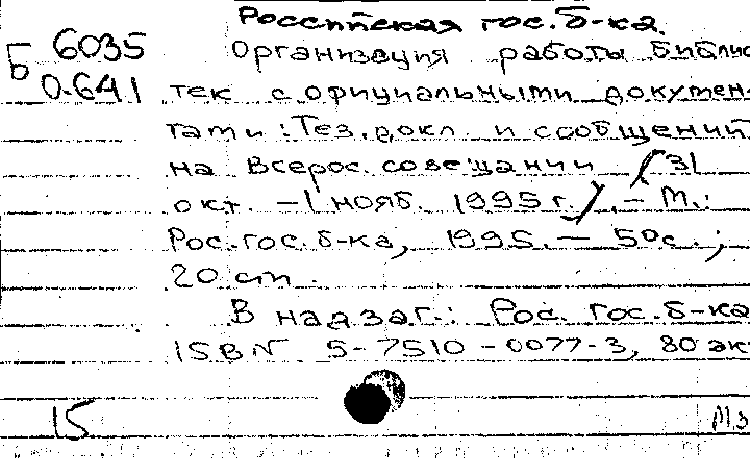 Российская гос. б-ка.
Б 6035 Организация работы библио
0-641 тек с официальными докумен-
тами: Тез. докл. и сообщений
на Всерос. совещании (31
окт. – 1 нояб. 1995 г.). – М.:
Рос. гос. б-ка, 1995. – 50 с.;
20 см.
В надзаг.: Рос. гос. б-ка
ISBN 5-7510-0077-3, 80 эк
15